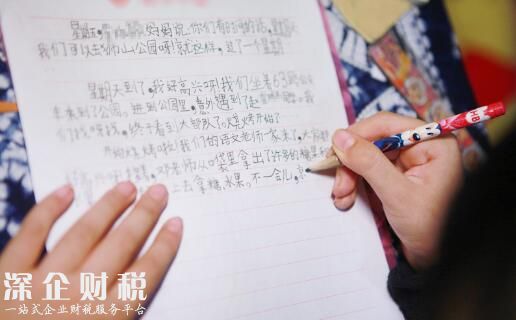 星期五,妈妈说:你们有时间的话,星期天
我们可以去狮山公园呀!就这样,过了一个星期
星期天到了。我好高兴呀!我们坐着63路公交
车来到了公园。进到公园里,意外遇到了赵
们找呀找,终于看到大部队了。烧烤开始了
开始烧烤啦!我们的语文老师一家来了。大家
邓老师从口袋里拿出了许多的糖果和
上去拿糖、水果。不一会儿,
HB
深企财税
一站式企业财税服务平台